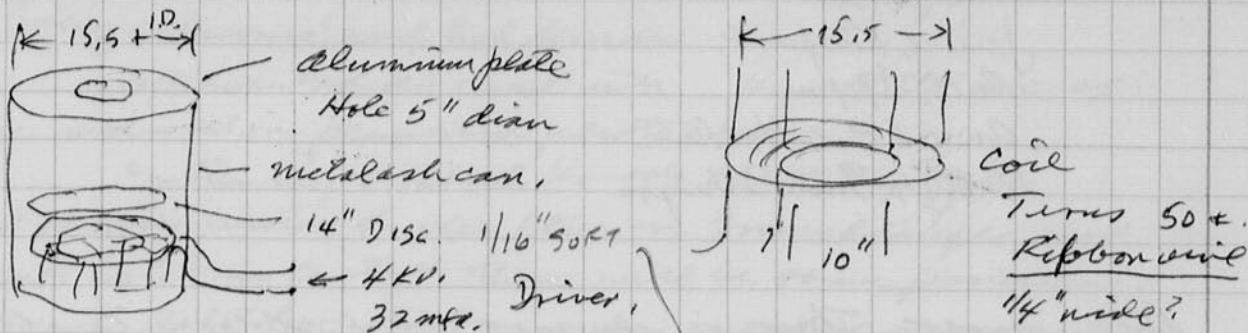 15.5 + I.D.
aluminum plate
Hole 5" diam
metal ash can.
14" Disc. 1/16" SOFT
4 KV.
32 mfd. Driver.
15.5
Coil
10"
Turns 50 ±.
Ribbon wire
1/4" wide?